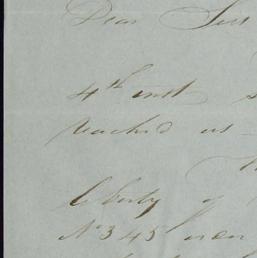 Dear Sir
4th inst
reached us
liberty of
No 345